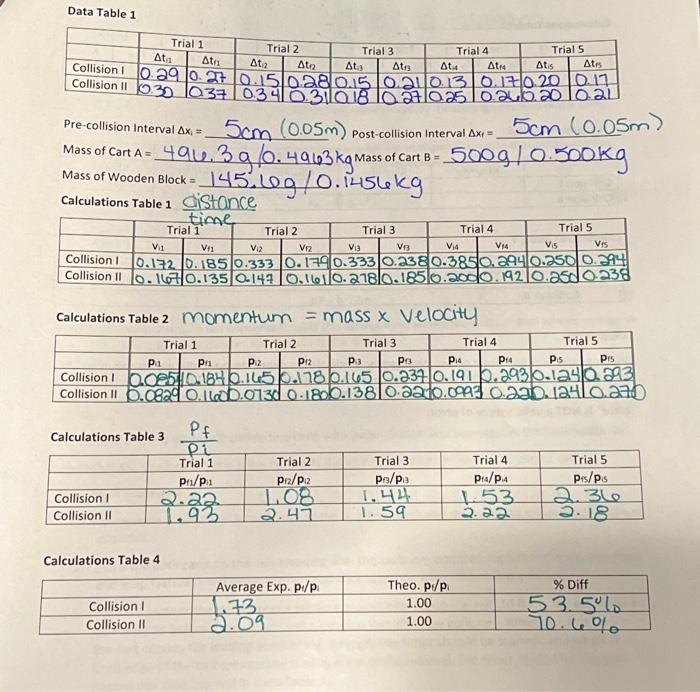 Data Table 1
Trial 1 Trial 2 Trial 3 Trial 4 Trial 5
Δti1 Δtf1 Δti2 Δtf2 Δti3 Δtf3 Δti4 Δtf4 Δti5 Δtf5
Collision I 0.29 0.27 0.15 0.28 0.15 0.21 0.13 0.17 0.20 0.17
Collision II 0.30 0.37 0.34 0.31 0.18 0.27 0.25 0.26 0.20 0.21
Pre-collision Interval Δxi = 5cm (0.05m) Post-collision Interval Δxf = 5cm (0.05m)
Mass of Cart A = 496.3g/0.4963kg Mass of Cart B = 500g/0.500kg
Mass of Wooden Block = 145.6g/0.1456kg
Calculations Table 1 distance
time
Trial 1 Trial 2 Trial 3 Trial 4 Trial 5
Vi1 Vf1 Vi2 Vf2 Vi3 Vf3 Vi4 Vf4 Vi5 Vf5
Collision I 0.172 0.185 0.333 0.179 0.333 0.238 0.385 0.294 0.250 0.294
Collision II 0.167 0.135 0.147 0.161 0.278 0.185 0.200 0.192 0.250 0.238
Calculations Table 2 momentum = mass x velocity
Trial 1 Trial 2 Trial 3 Trial 4 Trial 5
pi1 pf1 pi2 pf2 pi3 pf3 pi4 pf4 pi5 pf5
Collision I 0.0854 0.184 0.165 0.178 0.165 0.237 0.191 0.293 0.124 0.293
Collision II 0.0829 0.160 0.0730 0.180 0.138 0.220 0.0993 0.220 0.124 0.270
Calculations Table 3 Pf
Pi
Trial 1 Trial 2 Trial 3 Trial 4 Trial 5
pf1/pi1 pf2/pi2 pf3/pi3 pf4/pi4 pf5/pi5
Collision I 2.22 1.08 1.44 1.53 2.36
Collision II 1.93 2.47 1.59 2.22 2.18
Calculations Table 4
Average Exp. pf/pi Theo. pf/pi % Diff
Collision I 1.73 1.00 53.5%
Collision II 2.09 1.00 70.6%